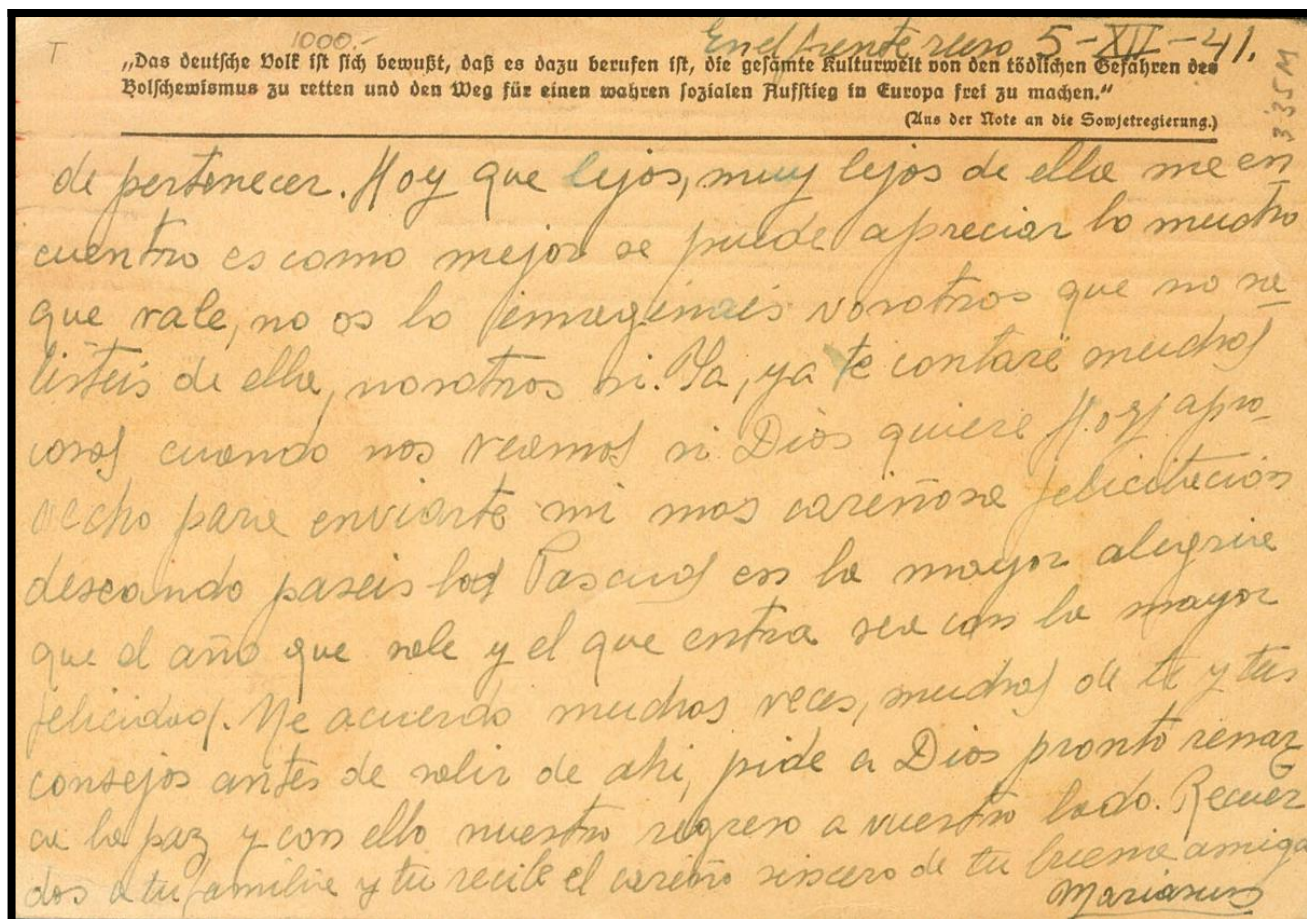 T
1000.-
En el frente ruso 5-XII-41.
„Das deutsche Volk ist sich bewußt, daß es dazu berufen ist, die gesamte Kulturwelt von den tödlichen Gefahren des
Bolschewismus zu retten und den Weg für einen wahren sozialen Aufstieg in Europa frei zu machen.“
(Aus der Note an die Sowjetregierung.)
335M
de pertenecer. Hoy que lejos, muy lejos de ella me en
cuentro es como mejor se puede apreciar lo mucho
que vale, no os lo imagináis vosotros que no sa
listeis de ella, nosotros si. Ya, ya te contaré muchas
cosas cuando nos veamos si Dios quiere Hoy apro
vecho para enviarte mi mas cariñosa felicitación
deseando paseis las Pascuas en la mayor alegria
que el año que sale y el que entra sea con la mayor
felicidad. Me acuerdo muchas veces, muchas de ti y tus
consejos antes de salir de ahi, pide a Dios pronto renaz
ca la paz y con ello nuestro regreso a vuestro lado. Recuer
dos a tu familia y tu recibe el cariño sincero de tu amiga
Mariano